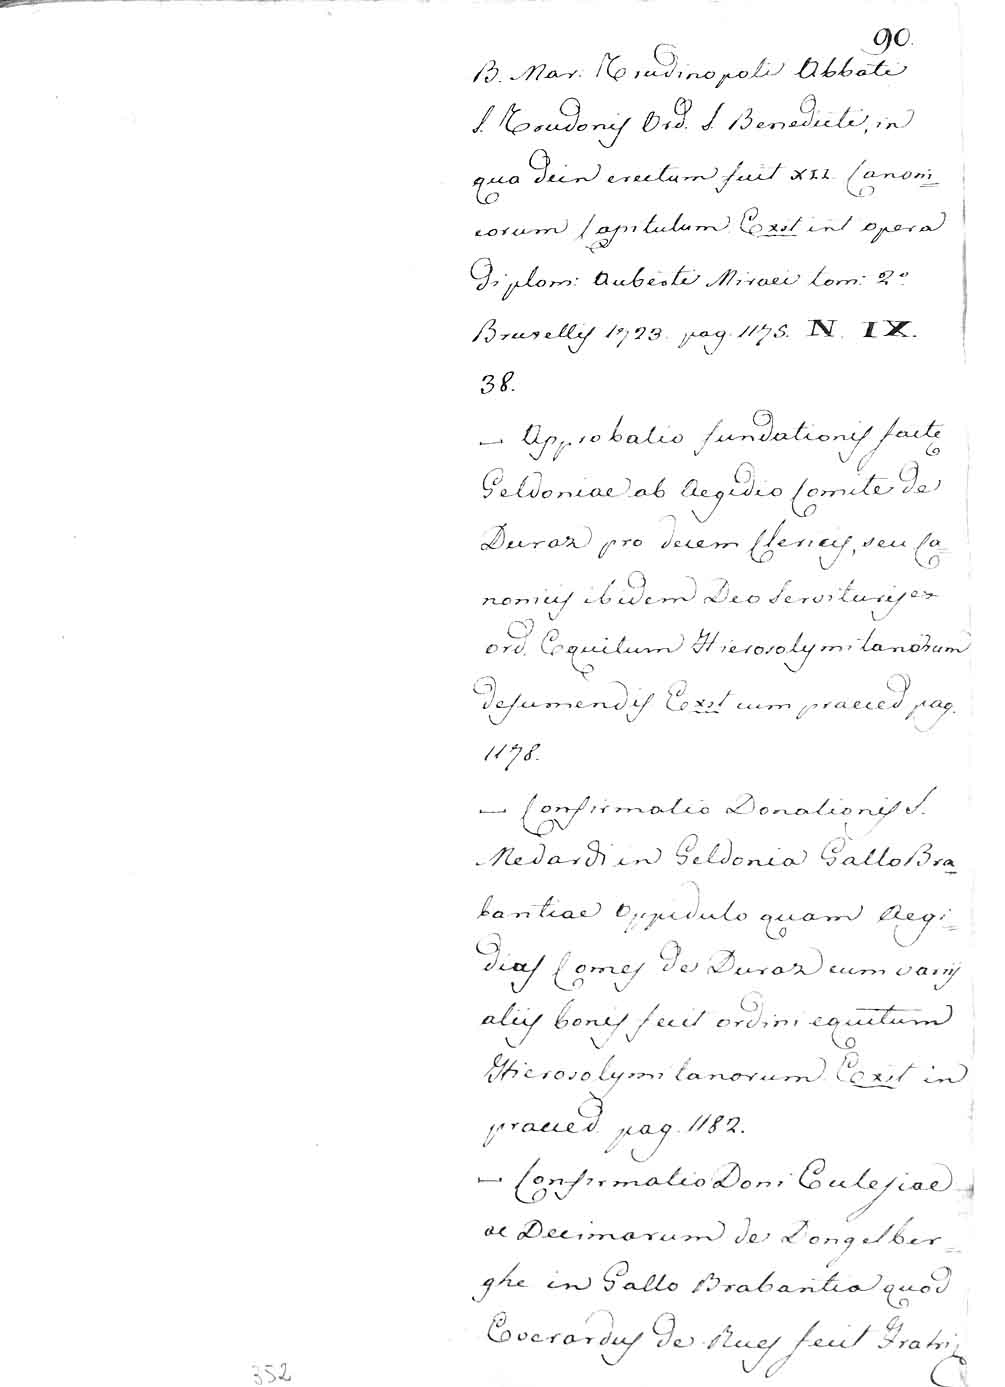 90.
B. Mar: Trudinopoli Abbati
S. Trudonis Ord. S. Benedicti, in
qua dein erectum fuit XII. Canoni=
corum Capitulum. Exst int opera
diplom: Auberti Miraei tom: 2º
Bruxellis 1723. pag. 1175. N. IX.
38.
— Approbatio fundationis factę
Geldoniae ab Aegidio Comite de
Duraz pro decem Clericis, seu Ca=
nonicis ibidem Deo servituris ex
ord. Equitum Hierosolymitanorum
desumendis Exst cum praeced pag.
1178.
— Confirmatio Donationis S.
Medardi in Geldonia Gallo Bra=
bantiae Oppidulo quam Aegi=
dias Comes de Duraz cum varijs
aliis bonis fecit ordini equitum
Hierosolymitanorum. Exst in
praeced. pag. 1182.
— Confirmatio Doni Eclesiae
ac Decimarum de Dongelber=
ghe in Gallo Brabantia quod
Everardus de Rues fecit Fratri
352